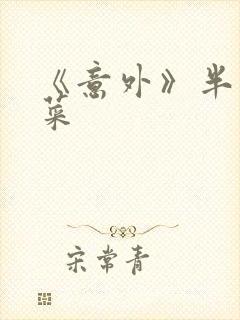 《意外》半
菜
宋常青